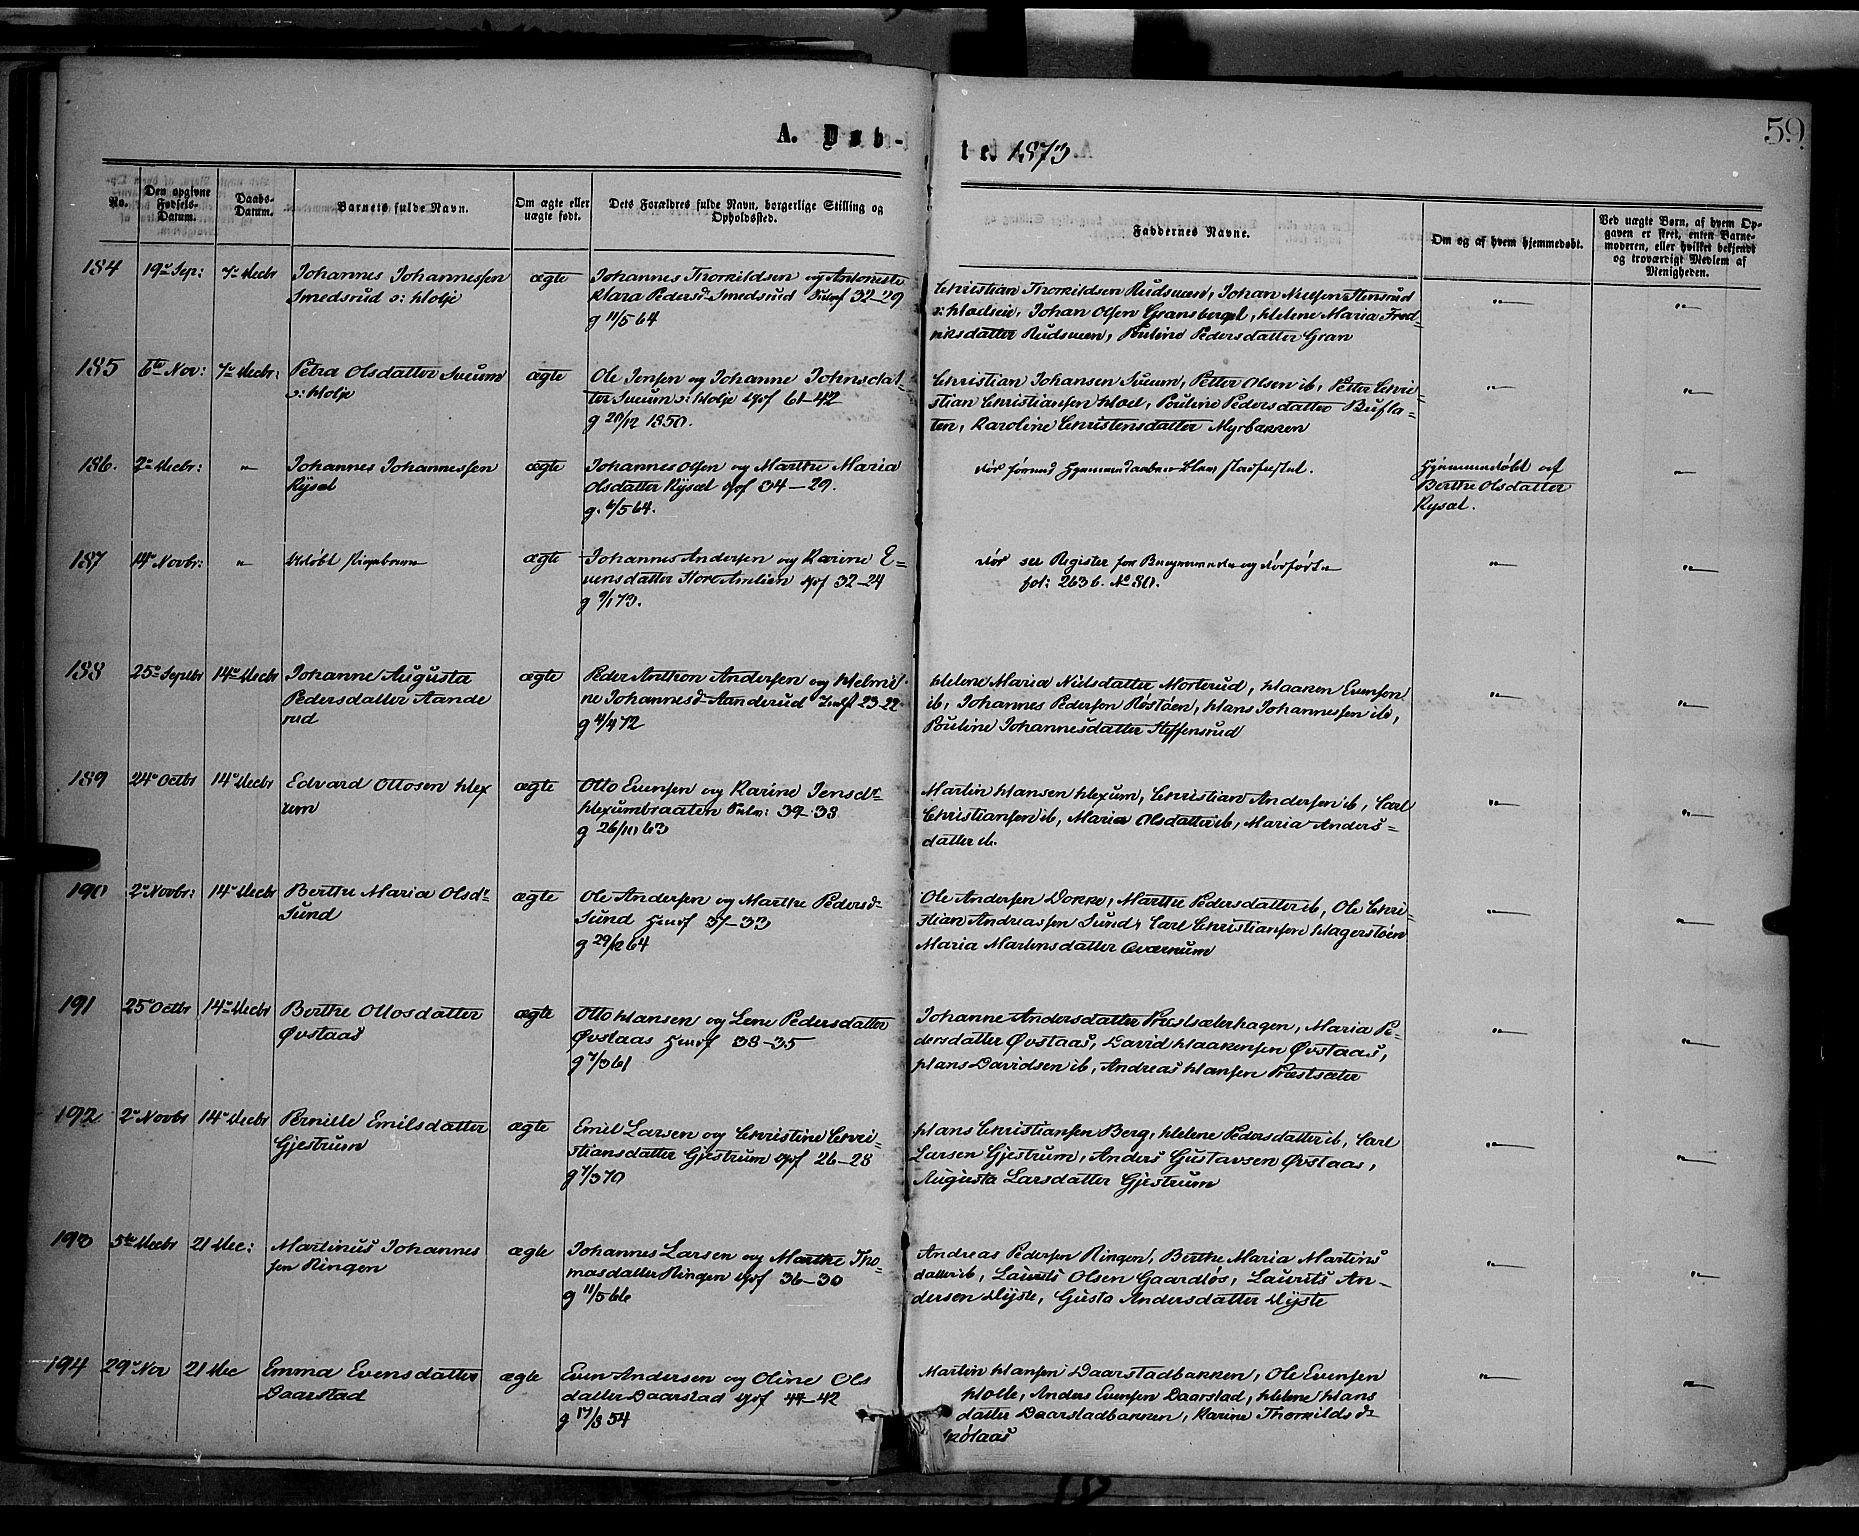 59.
A. Døb-
te. 1873
No.
Den opgivne Fødsels-Datum.
Daabs-Datum.
Barnets fulde Navn.
Om ægte eller uægte født.
Dets Forældres fulde Navn, borgerlige Stilling og Opholdssted.
Faddernes Navne.
Om og af hvem hjemmedøbt.
Ved uægte Børn, af hvem Opgaven er skeet, enten Barnemoderen, eller hvilket bekjendt og troværdigt Medlem af Menigheden.
184 19de Sep: 7de Decbr Johannes Johannessen
Smedsrud o: Kolje
ægte
Johannes Thorkildsen og Antonette
Klara Pedersd. Smedsrud 32-29
g 11/5 64
Christian Thorkildsen Rudsveen, Johan Nielsen Stensrud
Johan Olsen Gransberget, Helene Maria Fred-
riksdatter Rudsveen, Pauline Pedersdatter Gran
185 6te Nov: 7de Decbr: Petra Olsdatter Sveum
ægte
Ole Jensen og Johanne Johnsdat-
ter Sveum 61-42
g 20/12 1850.
Christian Johansen Sveum, Petter Olsen ib, Petter Chri-
stian Christiansen Hoel, Pauline Pedersdatter Bufla-
ten, Karoline Christensdatter Myrbakken
186. 2de Decbr: " Johannes Johannessen
Rysæt
ægte
Johannes Olsen og Marthe Maria
Olsdatter Rysæt gbf 34-29.
g. 6/5 64.
død førend Hjemmedaaben blev stadfæstet.
Hjemmedøbt af
Berthe Olsdatter
Rysæt.
187 14de Novbr: " Udøbt Pigebarn
ægte
Johannes Andersen og Karine E-
vensdatter Store Amlien gbf 32-24
g 9/1 73.
død see Register for Begravede og Dødfødte
fol: 263 b. No 80.
188 25de Septbr 14de Decbr Johanne Augusta
Pedersdatter Aande
rud
ægte
Peder Anthon Andersen og Helmi-
ne Johannesd. Aanderud Indst 23-22
g 4/4 72
Helene Maria Nilsdatter Morterud, Haaken Evensen
ib, Johannes Pedersen Røstøen, Hans Johannessen ib,
Pauline Johannesdatter Steffensrud
189 24de Octbr 14de Decbr Edvard Ottosen Hex
um
ægte
Otto Evensen og Karine Jensdr
Hexumbraaten 39-38
g 26/10 63
Martin Hansen Hexum, Christian Andersen ib, Carl
Christiansen ib, Maria Olsdatter ib, Maria Anders-
datter ib.
190 2de Novbr: 14de Decbr Berthe Maria Olsdr
Sund
ægte
Ole Andersen og Marthe Pedersd.
Sund Huusf 37-33
g 29/12 64
Ole Andersen Dokke, Marthe Pedersdatter ib, Ole Chri-
stian Andreassen Sund, Carl Christiansen Hagerstøen
Maria Martinsdatter Qværnum
191 25de Octbr 14de Decbr Berthe Ottosdatter
Øvstaas
ægte
Otto Hansen og Lene Pedersdatter
Øvstaas Huusf 38-35
g 7/3 61
Johanne Andersdatter Præstsæterhagen, Maria Pe-
dersdatter Øvstaas, David Haakensen Øvstaas,
Hans Davidsen ib, Andreas Hansen Præstsæter
192 2de Novbr 14de Decbr Pernille Emilsdatter
Gjestrum
ægte
Emil Larsen og Christine Chri-
stiansdatter Gjestrum gbf 26-28
g 7/3 70
Hans Christiansen Berg, Helene Pedersdatter ib, Carl
Larsen Gjestrum, Anders Gustavsen Øvstaas,
Augusta Larsdatter Gjestrum
193 5te Decbr 21 Dec: Martinus Johannes
sen Ringen
ægte
Johannes Larsen og Marthe Tho-
masdatter Ringen gbf 36-30
g 11/5 66
Andreas Pedersen Ringen, Berthe Maria Martins
datter ib, Lauris Olsen Gaardløs, Laurits An-
dersen Dyste, Gusta Andersdatter Dyste
194 29de Nov 21 Dec Emma Evensdatter
Daarstad
ægte
Even Andersen og Oline Ols
datter Daarstad gbf 44-42
g 17/3 54
Martin Hansen Daarstadbakken, Ole Evensen
Anders Evensen Daarstad, Helene Hans
datter Daarstadbakken, Karine Thorkildsd.